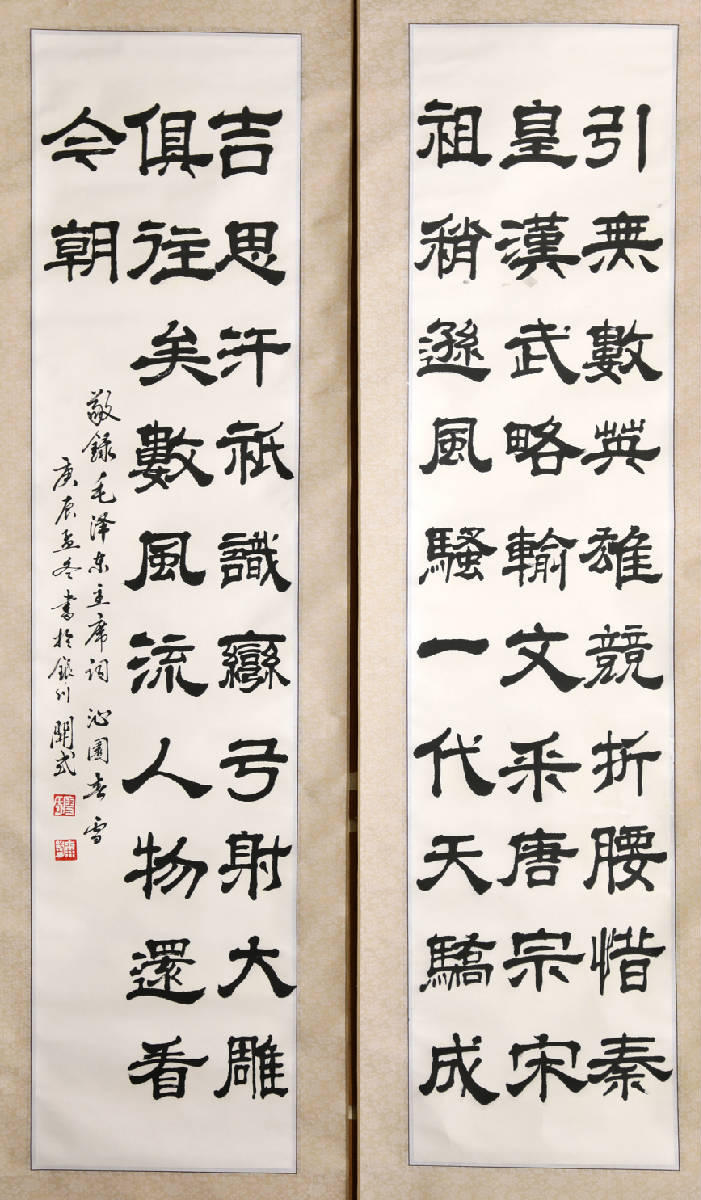 引無數英雄競折腰惜秦
皇漢武略輸文采唐宗宋
祖稍遜風騷一代天驕成
吉思汗祇識彎弓射大雕
俱往矣數風流人物還看
今朝
敬録毛泽东主席词沁園春雪
庚辰孟冬書於銀川開式